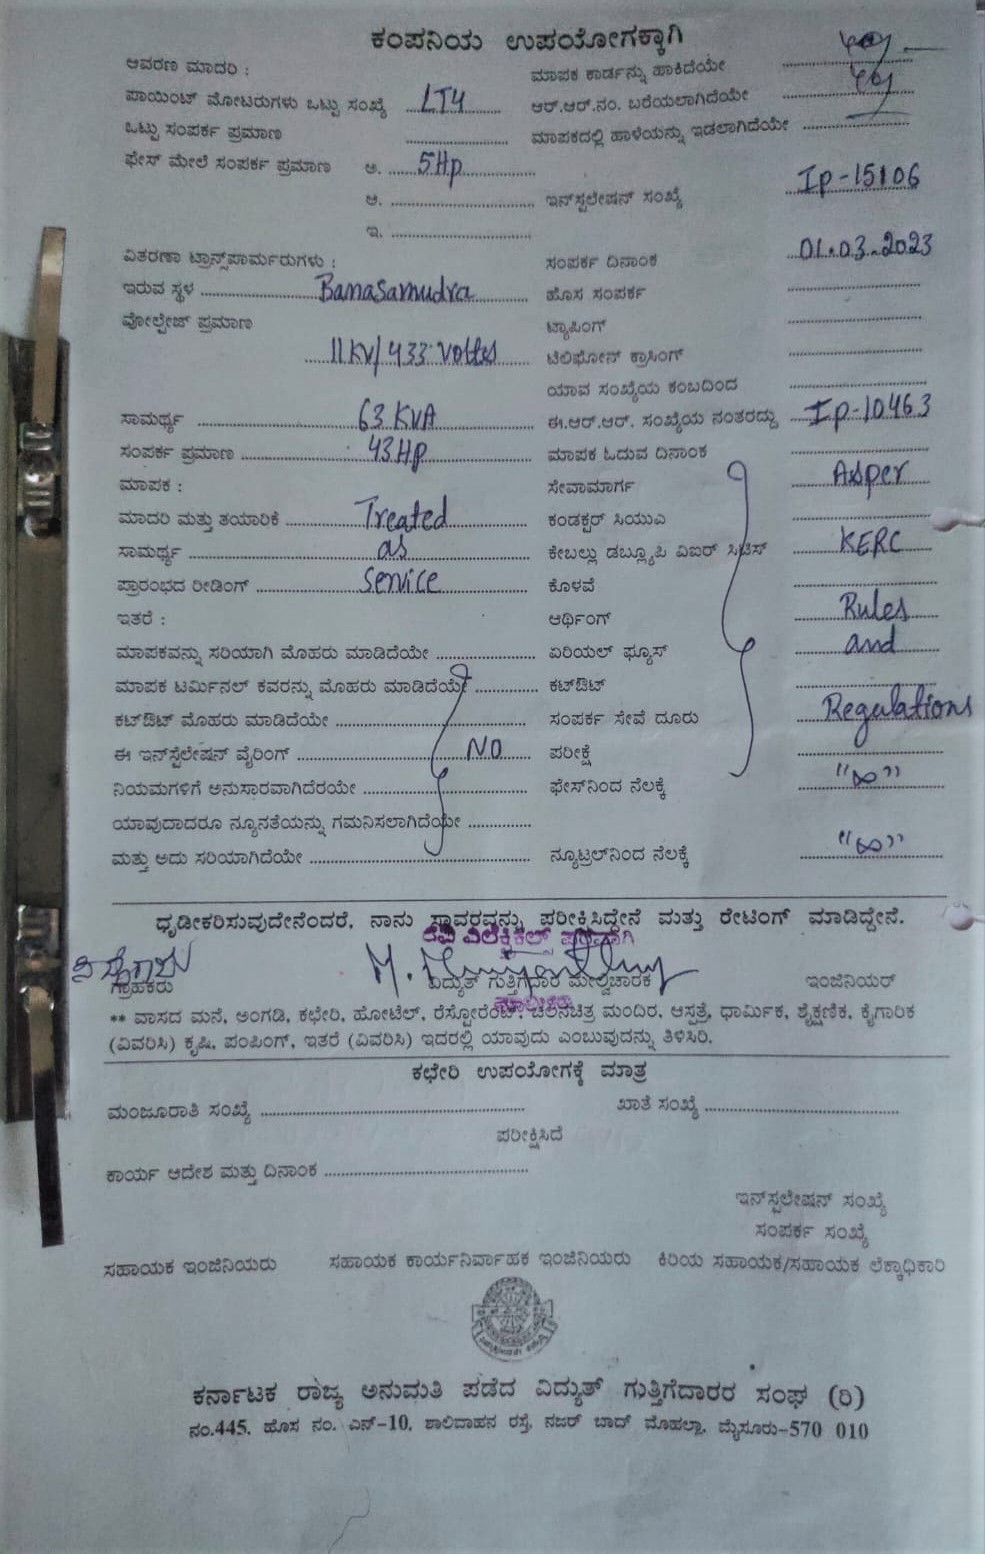 ಕಂಪನಿಯ ಉಪಯೋಗಕ್ಕಾಗಿ
ಆವರಣ ಮಾದರಿ : ಮಾಪಕ ಕಾರ್ಡನ್ನು ಹಾಕಿದೆಯೇ
ಪಾಯಿಂಟ್ ಮೋಟರುಗಳು ಒಟ್ಟು ಸಂಖ್ಯೆ LT4 ಆರ್.ಆರ್.ನಂ. ಬರೆಯಲಾಗಿದೆಯೇ
ಒಟ್ಟು ಸಂಪರ್ಕ ಪ್ರಮಾಣ ಮಾಪಕದಲ್ಲಿ ಹಾಳೆಯನ್ನು ಇಡಲಾಗಿದೆಯೇ
ಫೇಸ್ ಮೇಲೆ ಸಂಪರ್ಕ ಪ್ರಮಾಣ ಅ. 5Hp
ಆ. ಇನ್‌ಸ್ಟಲೇಷನ್ ಸಂಖ್ಯೆ Ip-15106
ಇ.
ವಿತರಣಾ ಟ್ರಾನ್ಸ್‌ಪಾರ್ಮರುಗಳು : ಸಂಪರ್ಕ ದಿನಾಂಕ 01.03.2023
ಇರುವ ಸ್ಥಳ Banasamudra ಹೊಸ ಸಂಪರ್ಕ
ವೋಲ್ಟೇಜ್ ಪ್ರಮಾಣ ಟ್ಯಾಪಿಂಗ್
11KV/433 voltes ಟೆಲಿಫೋನ್ ಕ್ರಾಸಿಂಗ್
ಯಾವ ಸಂಖ್ಯೆಯ ಕಂಬದಿಂದ
ಸಾಮರ್ಥ್ಯ 63 KVA ಈ.ಆರ್.ಆರ್. ಸಂಖ್ಯೆಯ ನಂತರದ್ದು Ip-10463
ಸಂಪರ್ಕ ಪ್ರಮಾಣ 43Hp ಮಾಪಕ ಓದುವ ದಿನಾಂಕ
ಮಾಪಕ : ಸೇವಾಮಾರ್ಗ Asper
ಮಾದರಿ ಮತ್ತು ತಯಾರಿಕೆ Treated ಕಂಡಕ್ಟರ್ ಸಿಯುಎ
ಸಾಮರ್ಥ್ಯ as ಕೇಬಲ್ಲು ಡಬ್ಲ್ಯೂಪಿ ವಿಐರ್ KERC
ಪ್ರಾರಂಭದ ರೀಡಿಂಗ್ Service ಕೊಳವೆ
ಇತರೆ : ಆರ್ಥಿಂಗ್ Rules
ಮಾಪಕವನ್ನು ಸರಿಯಾಗಿ ಮೊಹರು ಮಾಡಿದೆಯೇ ಏರಿಯಲ್ ಫ್ಯೂಸ್ and
ಮಾಪಕ ಟರ್ಮಿನಲ್ ಕವರನ್ನು ಮೊಹರು ಮಾಡಿದೆಯೇ ಕಟ್‌ಔಟ್
ಕಟ್‌ಔಟ್ ಮೊಹರು ಮಾಡಿದೆಯೇ ಸಂಪರ್ಕ ಸೇವೆ ದೂರು Regulations
ಈ ಇನ್‌ಸ್ಟಲೇಷನ್ ವೈರಿಂಗ್ NO ಪರೀಕ್ಷೆ
ನಿಯಮಗಳಿಗೆ ಅನುಸಾರವಾಗಿದೆರಯೇ ಫೇಸ್‌ನಿಂದ ನೆಲಕ್ಕೆ "∞"
ಯಾವುದಾದರೂ ನ್ಯೂನತೆಯನ್ನು ಗಮನಿಸಲಾಗಿದೆಯೇ
ಮತ್ತು ಅದು ಸರಿಯಾಗಿದೆಯೇ ನ್ಯೂಟ್ರಲ್‌ನಿಂದ ನೆಲಕ್ಕೆ "∞"
ಧೃಡೀಕರಿಸುವುದೇನೆಂದರೆ, ನಾನು ಸ್ಥಾವರವನ್ನು ಪರೀಕ್ಷಿಸಿದ್ದೇನೆ ಮತ್ತು ರೇಟಿಂಗ್ ಮಾಡಿದ್ದೇನೆ.
ರವಿ ಎಲೆಕ್ಟ್ರಿಕಲ್ಸ್ ಪರವಾಗಿ
ಗ್ರಾಹಕರು ವಿದ್ಯುತ್ ಗುತ್ತಿಗೆದಾರ ಮೇಲ್ವಿಚಾರಕ ಇಂಜಿನಿಯರ್
ಮಾಲೀಕರು
** ವಾಸದ ಮನೆ, ಅಂಗಡಿ, ಕಛೇರಿ, ಹೋಟೆಲ್, ರೆಸ್ಟೋರೆಂಟ್, ಚಲನಚಿತ್ರ ಮಂದಿರ, ಆಸ್ಪತ್ರೆ, ಧಾರ್ಮಿಕ, ಶೈಕ್ಷಣಿಕ, ಕೈಗಾರಿಕ
(ವಿವರಿಸಿ) ಕೃಷಿ, ಪಂಪಿಂಗ್, ಇತರೆ (ವಿವರಿಸಿ) ಇದರಲ್ಲಿ ಯಾವುದು ಎಂಬುವುದನ್ನು ತಿಳಿಸಿರಿ.
ಕಛೇರಿ ಉಪಯೋಗಕ್ಕೆ ಮಾತ್ರ
ಮಂಜೂರಾತಿ ಸಂಖ್ಯೆ ಖಾತೆ ಸಂಖ್ಯೆ
ಪರೀಕ್ಷಿಸಿದೆ
ಕಾರ್ಯ ಆದೇಶ ಮತ್ತು ದಿನಾಂಕ
ಇನ್‌ಸ್ಟಲೇಷನ್ ಸಂಖ್ಯೆ
ಸಂಪರ್ಕ ಸಂಖ್ಯೆ
ಸಹಾಯಕ ಇಂಜಿನಿಯರು ಸಹಾಯಕ ಕಾರ್ಯನಿರ್ವಾಹಕ ಇಂಜಿನಿಯರು ಕಿರಿಯ ಸಹಾಯಕ/ಸಹಾಯಕ ಲೆಕ್ಕಾಧಿಕಾರಿ
ಕರ್ನಾಟಕ ರಾಜ್ಯ ಅನುಮತಿ ಪಡೆದ ವಿದ್ಯುತ್ ಗುತ್ತಿಗೆದಾರರ ಸಂಘ (ರಿ)
ನಂ.445, ಹೊಸ ನಂ. ಎನ್-10, ಶಾಲಿವಾಹನ ರಸ್ತೆ, ನಜರ್ ಬಾದ್ ಮೊಹಲ್ಲಾ, ಮೈಸೂರು-570 010